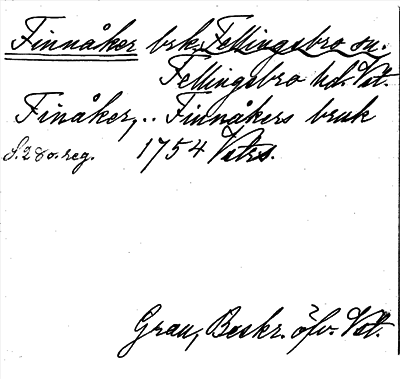 Finnåker brk, Fellingsbro sn.
Fellingsbro hd. Vst.
Finåker, .. Finnåkers bruk
S. 280. reg. 1754 Vstrs.
Grau, Beskr. öfv. Vst.